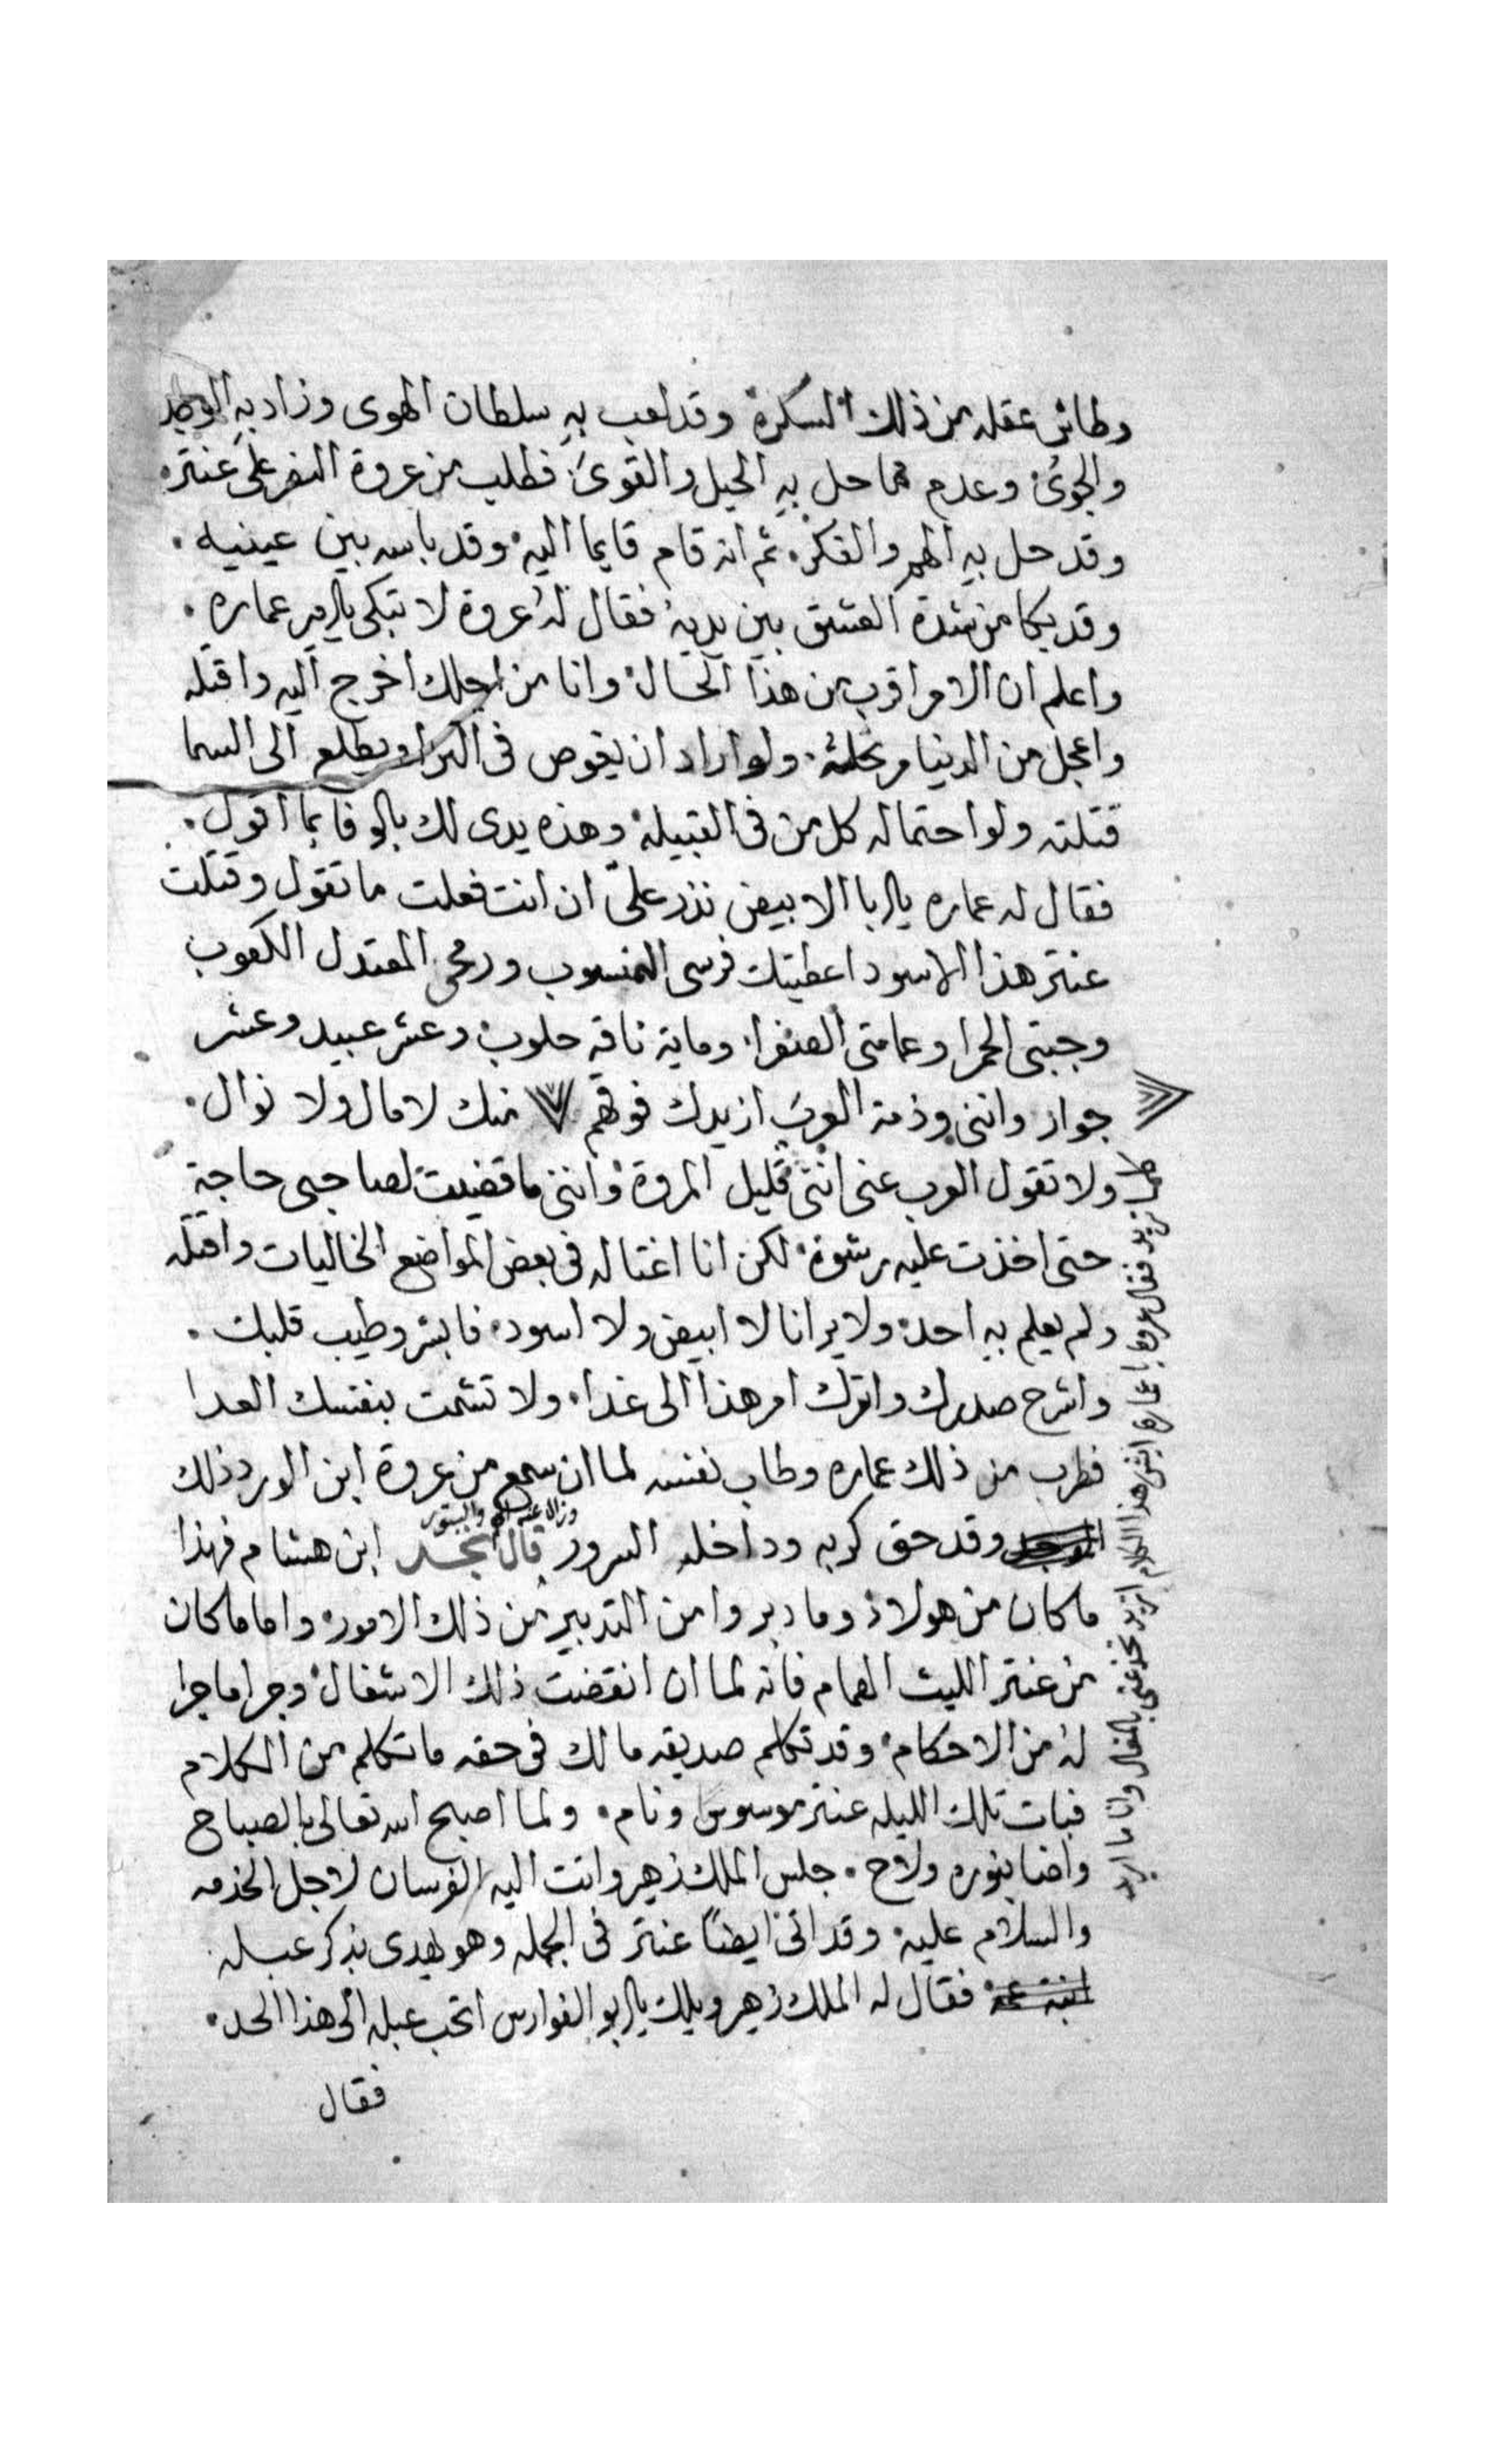 وطاش عقله من ذلك السكره وقد لعب به سلطان الهوى وزاد به الوجد
والجوى وعدم مما حل به الحيل والقوى فطلب من عروة النصر على عنتر
وقد حل به الهم والفكر ثم انه قام قايما اليه وقد باسه بين عينيه
وقد بكا من شدة العشق بين يديه فقال له عروة لا تبكى يا امير عماره
واعلم ان الامر اقرب من هذا الحال وانا من اجلك اخرج اليه واقتله
واعجل من الدنيا مرتحله ولو اراد ان يغوص فى الثرا او يطلع الى السما
قتلته ولو احتما له كل من فى القبيلة وهذه يدى لك بالوفا بما اقول
فقال له عماره يا ابا الابيض نذر علىّ ان انت فعلت ما تقول وقتلت
عنتر هذا الاسود اعطيتك فرسى المنسوب ورمحى المعتدل الكعوب
وجبتى الحمرا وعمامتى الصفرا وماية ناقه حلوب وعشر عبيد وعشر
جوار واننى وذمة العرب ازيدك فوقهم منك لا مال ولا نوال
ولا تقول العرب عنى اننى قليل المروة واننى ما قضيت لصاحبى حاجة
حتى اخذت عليه رشوة لكن انا اغتاله فى بعض المواضع الخاليات واقتله
ولم يعلم به احد ولا يرانا لا ابيض ولا اسود فابشر وطيب قلبك
واشرح صدرك واترك امر هذا الى غدا ولا تشمت بنفسك العدا
فطرب من ذلك عماره وطاب نفسه لما ان سمع من عروة ابن الورد ذلك
وقد حق كربه وداخله السرور وزال عنه الهم قال نجد ابن هشام فهذا
ما كان من هولاد وما دبروا من التدبير من ذلك الامور واما ما كان
من عنتر الليث الهمام فانه لما ان انقضت ذلك الاشغال وجرا ما جرا
له من الاحكام وقد تكلم صديقه مالك فى حقه ما تكلم من الكلام
فبات تلك الليله عنتر موسوس ونام ولما اصبح الله تعالى بالصباح
واضا بنوره ولاح جلس الملك زهير واتت اليه الفرسان لاجل الخدمه
والسلام عليه وقد اتى ايضًا عنتر فى الجمله وهو يهدى بذكر عبله
فقال له الملك زهير ويلك يا ابو الفوارس اتحب عبله الى هذا الحد
فقال
تريد فقال عروه يا عماره ايش هذا الكلام اتريد تخدعنى بالمال وانا ما اريد